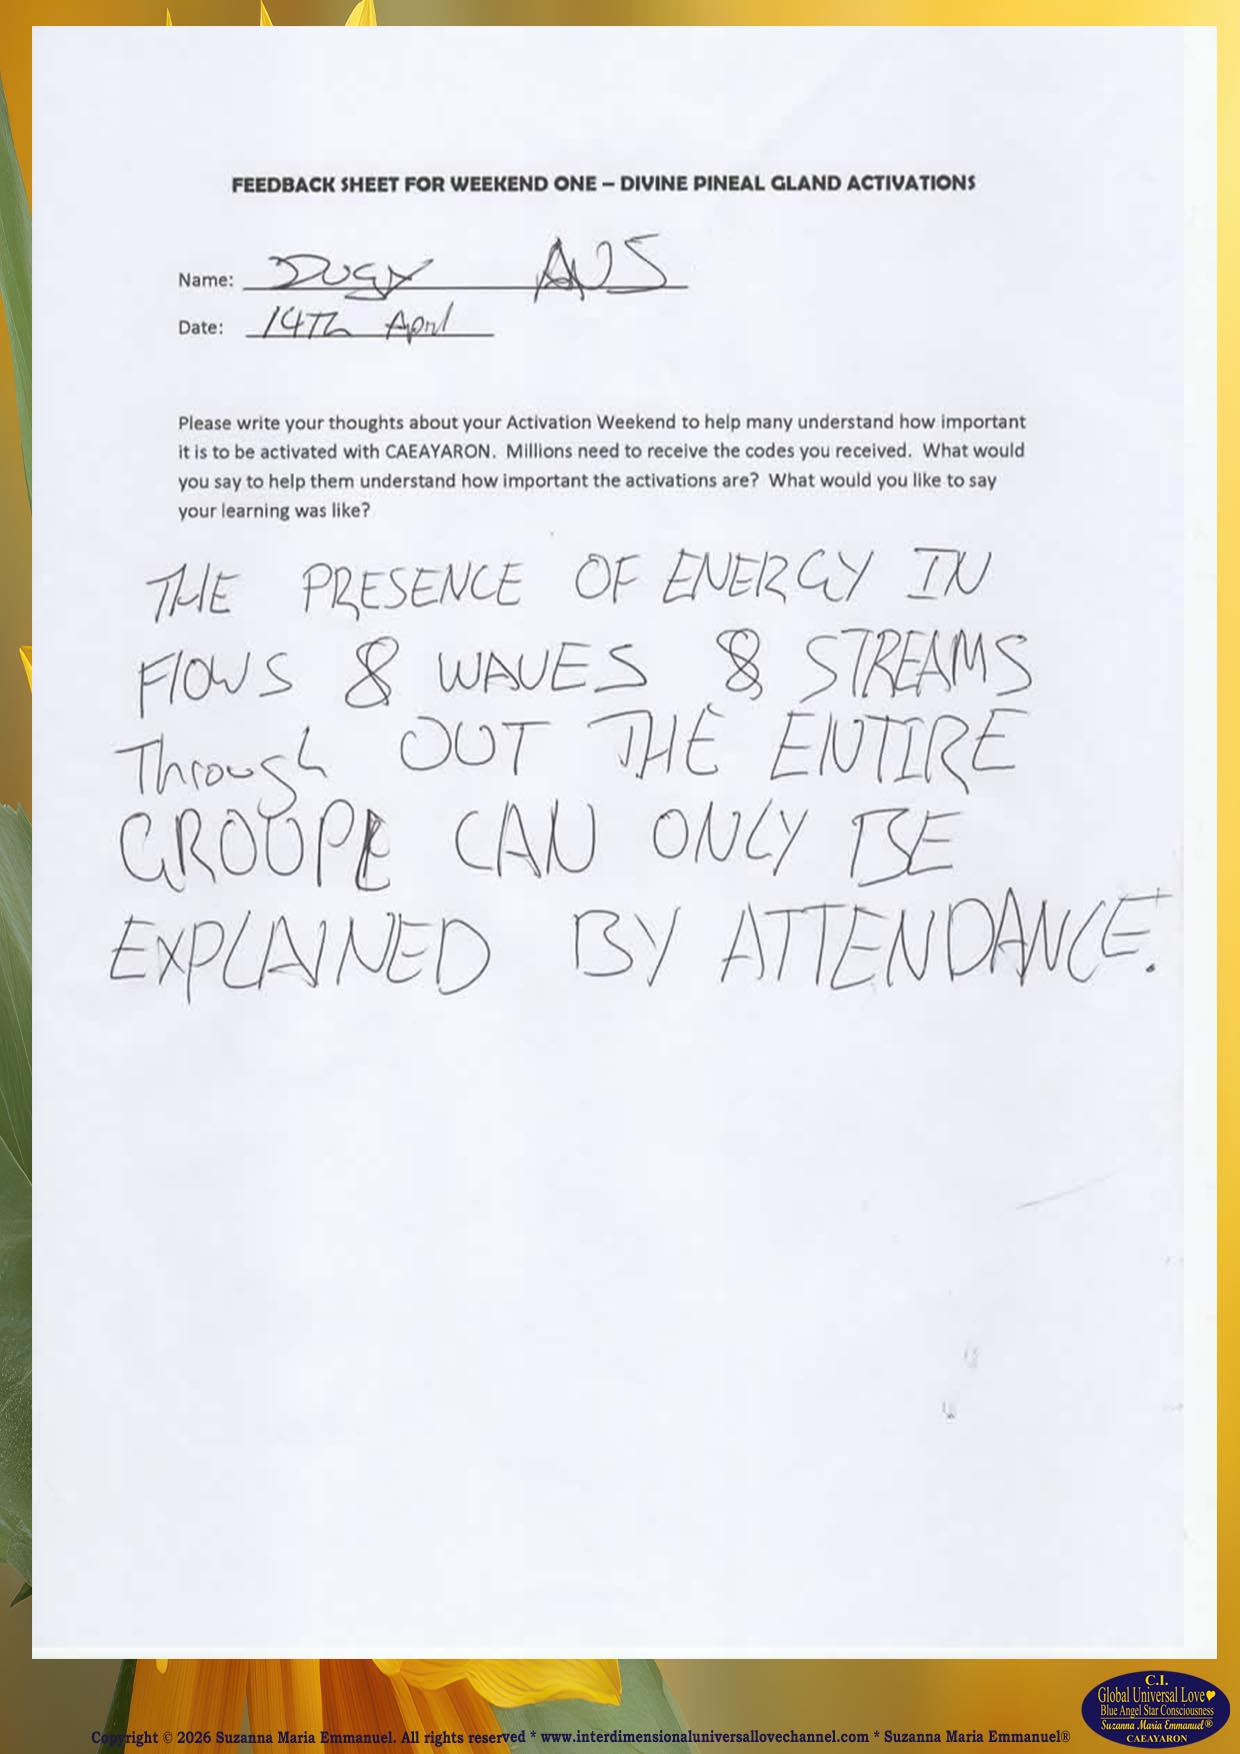 FEEDBACK SHEET FOR WEEKEND ONE – DIVINE PINEAL GLAND ACTIVATIONS
Name: DUGY AUS
Date: 14Th April
Please write your thoughts about your Activation Weekend to help many understand how important
it is to be activated with CAEAYARON. Millions need to receive the codes you received. What would
you say to help them understand how important the activations are? What would you like to say
your learning was like?
THE PRESENCE OF ENERGY IN
FlOWS & WAVES & STREAMS
Through OUT THE ENTIRE
GROUPE CAN ONLY BE
EXPLAINED BY ATTENDANCE.
C.I.
Global Universal Love
Blue Angel Star Consciousness
Suzanna Maria Emmanuel®
CAEAYARON
Copyright © 2026 Suzanna Maria Emmanuel. All rights reserved * www.interdimensionaluniversallovechannel.com * Suzanna Maria Emmanuel®